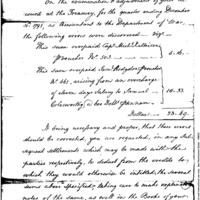 On the examination & adjustment of your ac
count at the Treasury, for the quarter ending December
31. 1798, as Accountant to the Department of War,
the following errors were discovered. Viz.
This sum overpaid Capt.
Voucher No.
This sum overpaid Hodgdon Voucher
No. 461, arising from an overcharge
of seven days salary to Samuel
Dollars 23.49
It being necessary and proper, that these
should be corrected, you are requested, in any sub
sequent settlements which may be made with the
parties respectively, to deduct from the credits to,
which they would otherwise be entitled, the several
sums above specified, taking care to make
notes of the same, as well in the Books of your